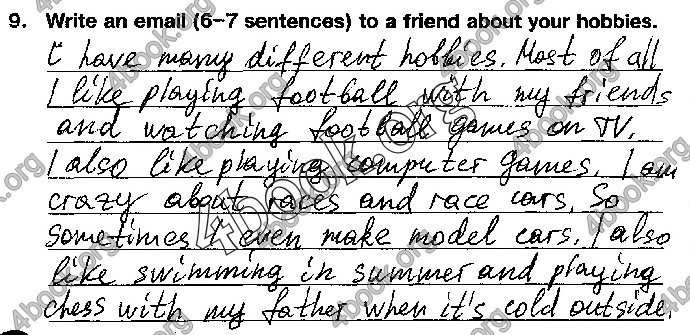 9. Write an email (6–7 sentences) to a friend about your hobbies.
I have many different hobbies. Most of all
I like playing football with my friends
and watching football games on TV.
I also like playing computer games. I am
crazy about races and race cars. So
sometimes I even make model cars. I also
like swimming in summer and playing
chess with my father when it's cold outside.
4book.org